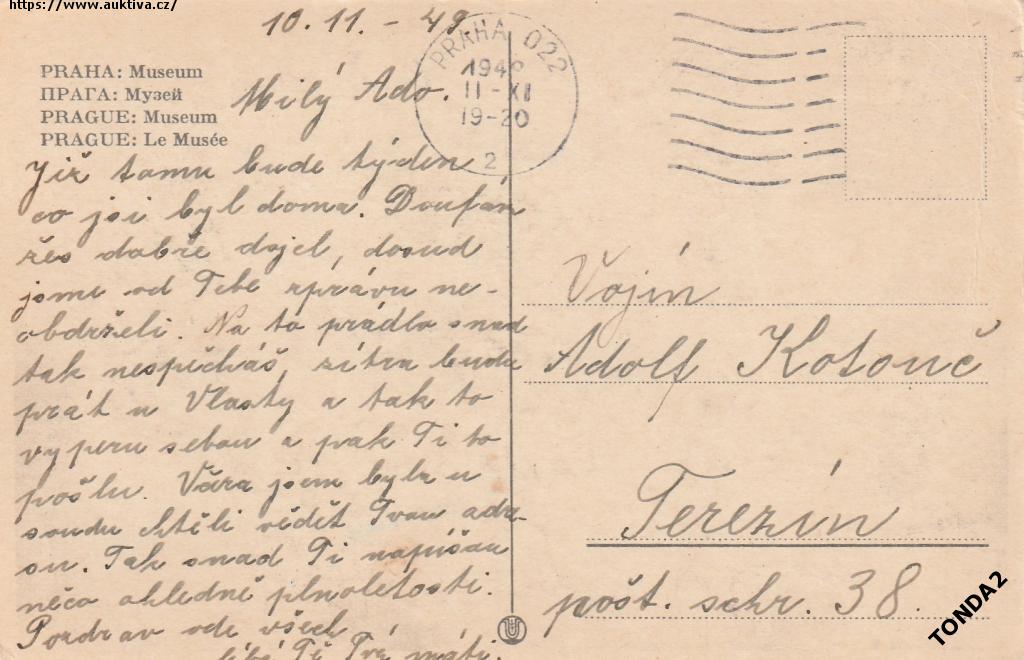 https://www.auktiva.cz/
10.11. - 49
PRAHA 022
1949
11-XI
19-20
2
PRAHA: Museum
ПРАГА: Музей
PRAGUE: Museum
PRAGUE: Le Musée
Milý Ado.
Již tomu bude týden
co jsi byl doma. Doufám
žes dobře dojel, dosud
jsme od Tebe zprávu ne-
obdrželi. Na to prádlo snad
tak nespěcháš, zítra budu
prát u Vlasty a tak to
vyperu sebou a pak Ti to
pošlu. Včera jsem byla u
soudu chtěli vědět Tvou adre-
su. Tak snad Ti napíšou
něco ohledně plnoletosti.
Pozdrav ode všech
líbá Tě Tvá máti.
Vojín
Adolf Kotouč
Terezín
pošt. schr. 38.
TONDA2